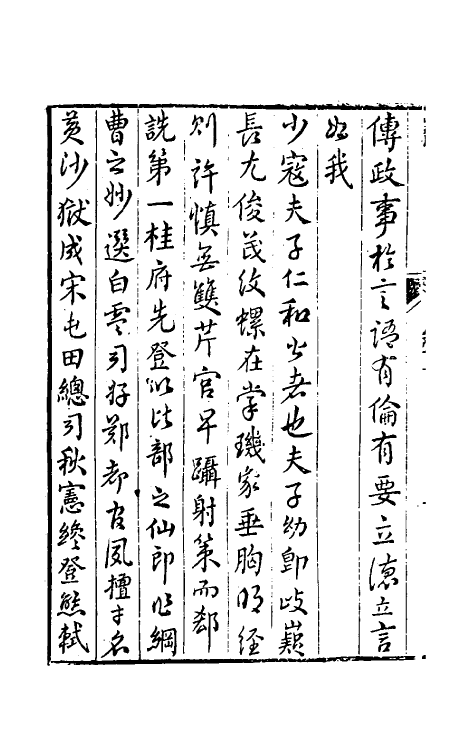 傳政事於言語有倫有要立德立言
如我
少寇夫子仁和公者也夫子幼即岐嶷
長尤俊茂紋螺在掌璣家垂胸明經
則許慎無雙芹宮早躡射策而郄
詵第一桂府先登以比部之仙郎作綱
曹之妙選白雲司好鄭都官夙擅才名
黃沙獄成宋屯田總司秋憲終登熊軾